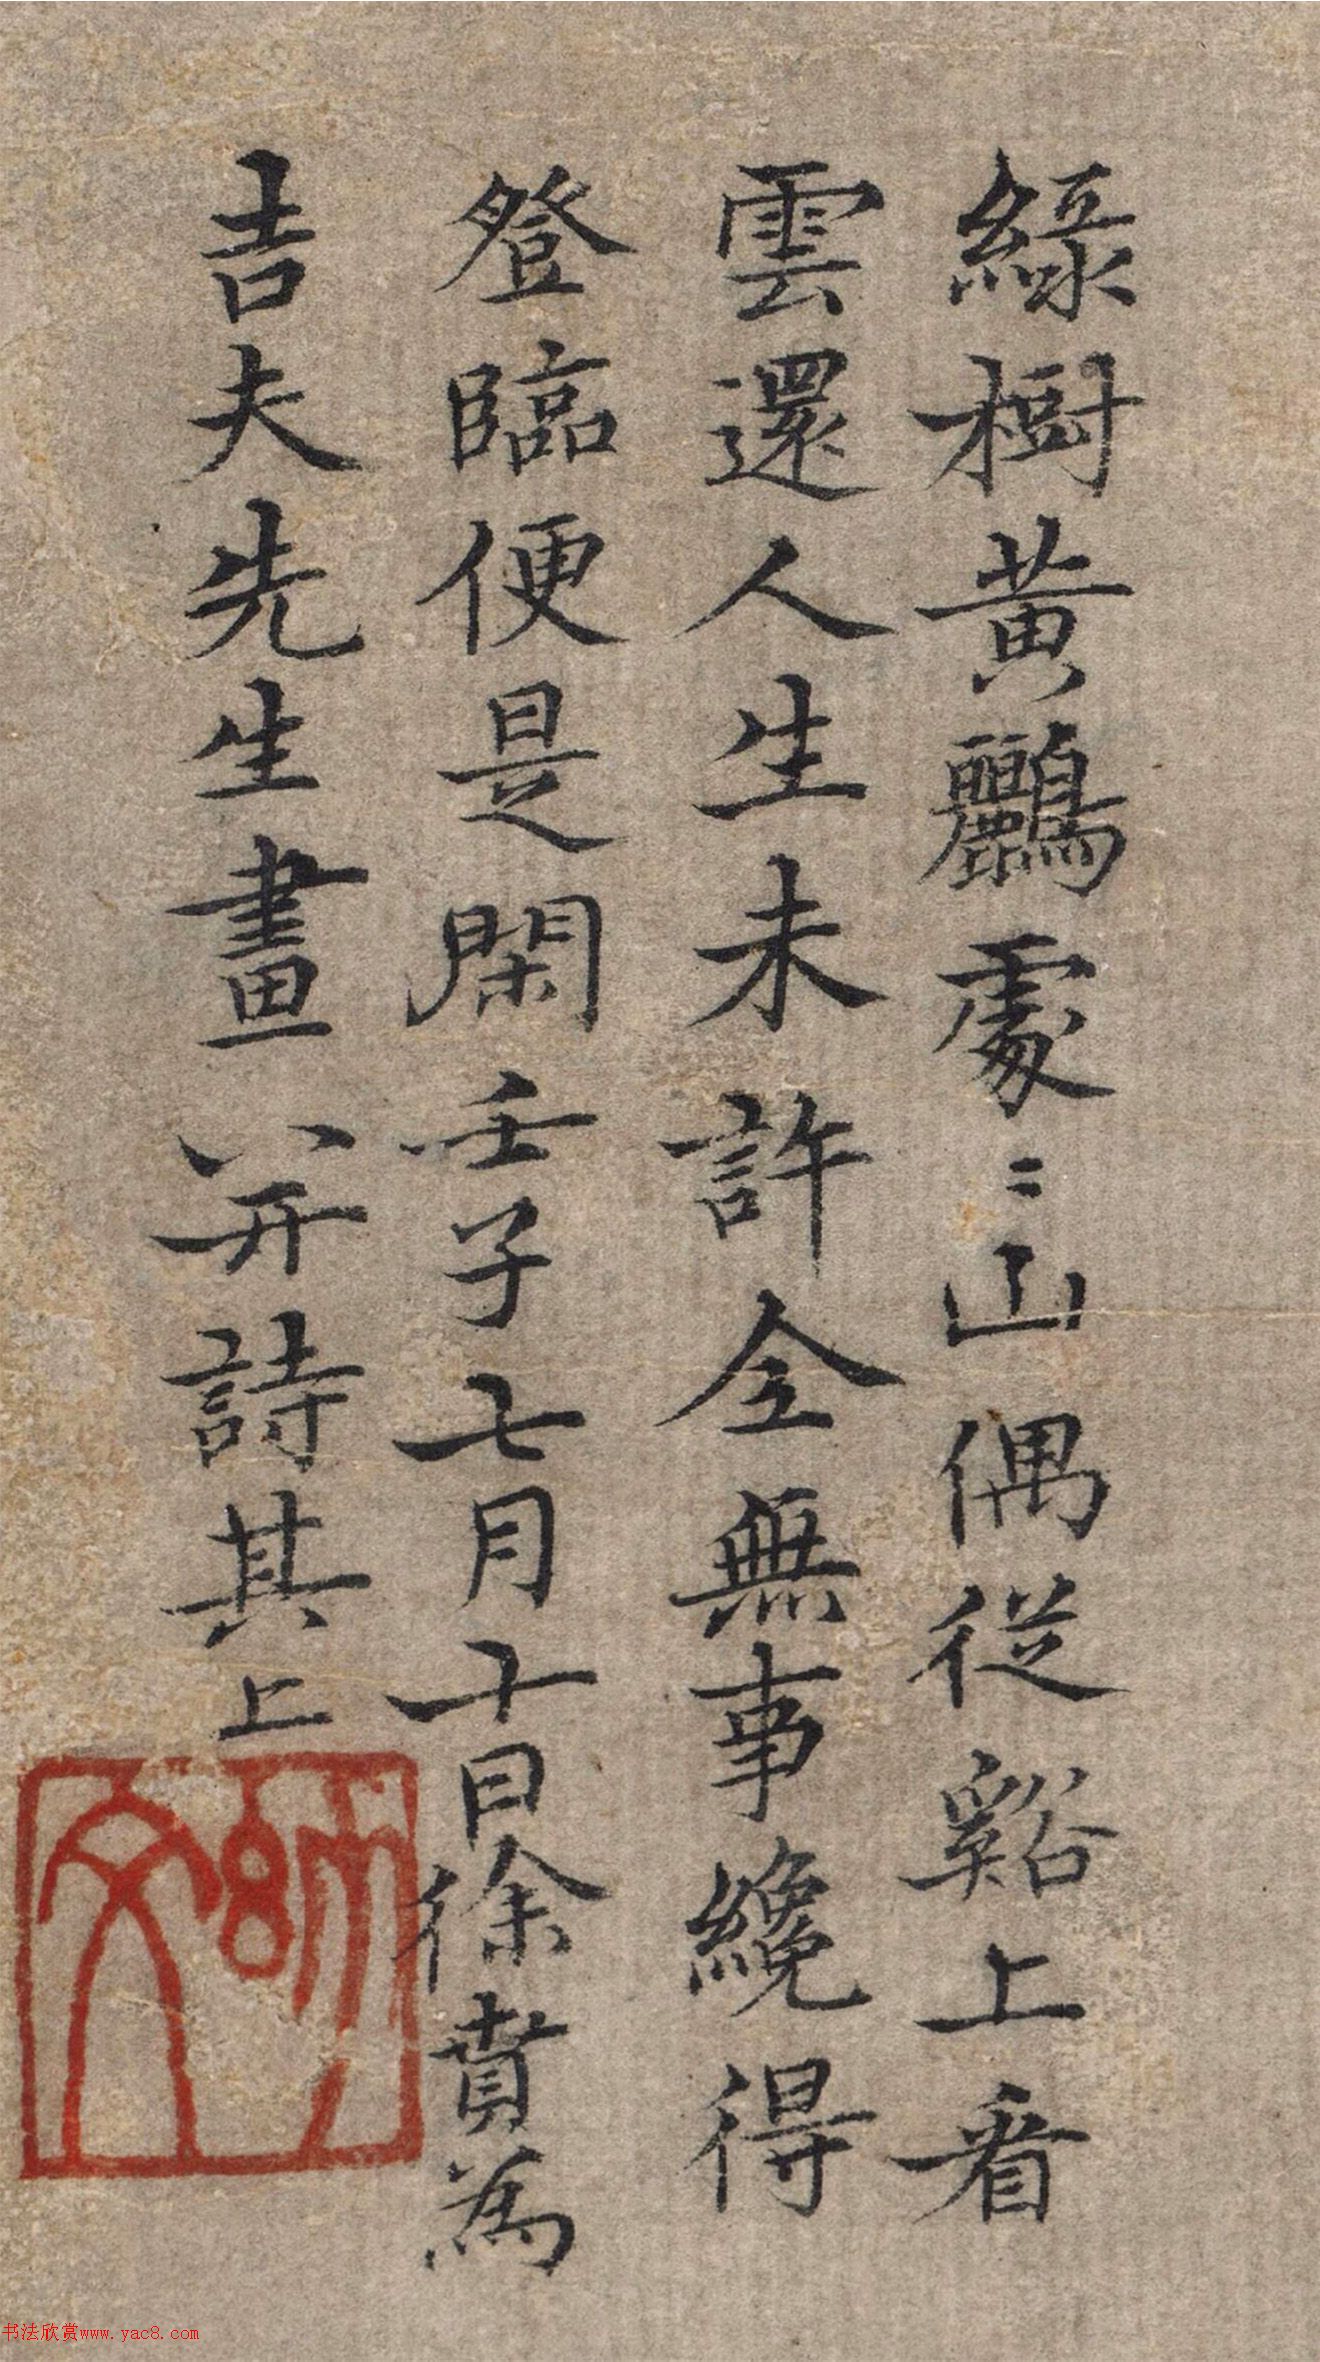 綠樹黄鸝處〻山偶從谿上看
雲還人生未許全無事纔得
登臨便是閑壬子七月十日徐賁為
吉夫先生畫并詩其上
书法欣赏www.yac8.com